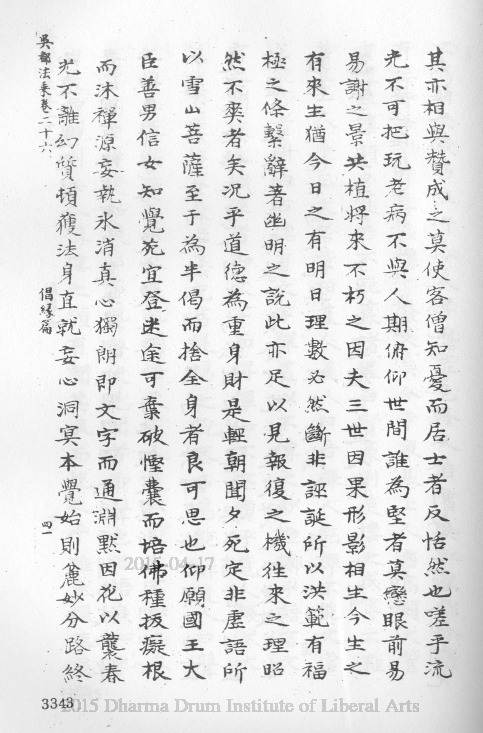 其亦相與贊成之莫使客僧知憂而居士者反恬然也嗟乎流
光不可把玩老病不與人期俯仰世間誰為堅者莫戀眼前易
易謝之景共植將來不朽之因夫三世因果形影相生今生之
有來生猶今日之有明日理數必然斷非誣誕所以洪範有福
極之條繫辭著幽明之說此亦足以見報復之機往來之理昭
然不爽者矣況乎道德為重身財是輕朝聞夕死定非虛語所
以雪山菩薩至于為半偈而捨全身者良可思也仰願國王大
臣善男信女知覺苑宜登迷途可棄破慳囊而培佛種拔癡根
而沐禪源妄執氷消真心獨朗即文字而通淵默因花以襲春
光不離幻質頓獲法身直就妄心洞冥本覺始則麤妙分路終
吳都法乘卷二十六
倡緣篇
四一
3343
2015.04.17
2015 Dharma Drum Institute of Liberal Arts